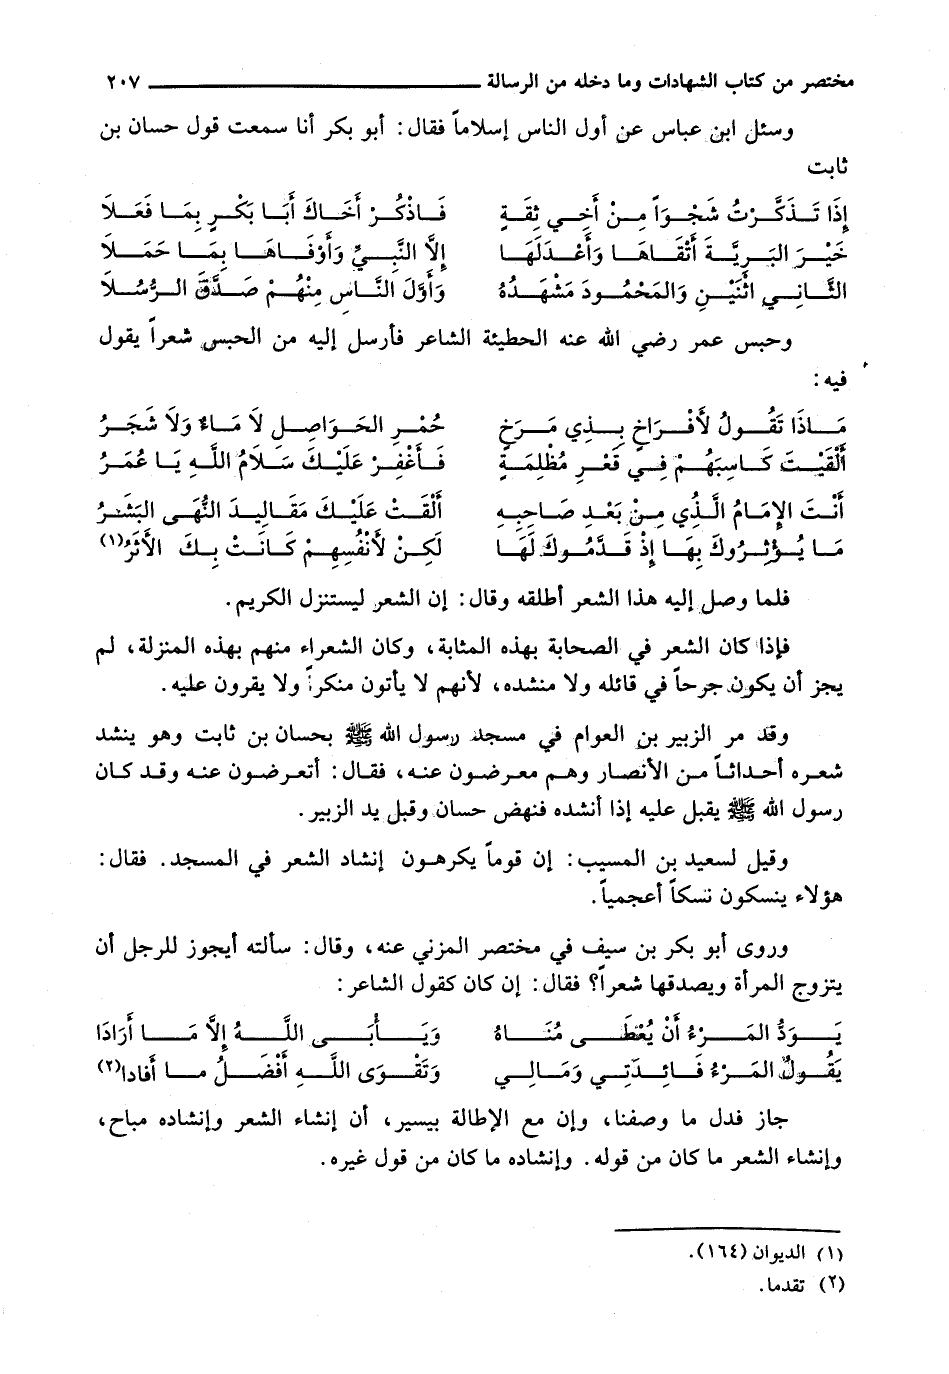 مختصر من كتاب الشهادات وما دخله من الرسالة ٢٠٧
وسئل ابن عباس عن أول الناس إسلاماً فقال: أبو بكر أنا سمعت قول حسان بن
ثابت
إِذَا تَذَكَّرْتُ شَجْوَاً مِنْ أَخِي ثِقَةٍ فَاذْكُرْ أَخَاكَ أَبَا بَكْرٍ بِمَا فَعَلاَ
خَيْرَ البَرِيَّةَ أَتْقَاهَا وَأَعْدَلَهَا إِلَّا النَّبِيِّ وَأَوْفَاهَا بِمَا حَمَلاَ
الثَّانِي اثْنَيْنِ وَالمَحْمُودَ مَشْهَدُهُ وَأَوَّلَ النَّاسِ مِنْهُمْ صَدَّقَ الرُّسُلاَ
وحبس عمر رضي الله عنه الحطيئة الشاعر فأرسل إليه من الحبس شعراً يقول
فيه:
مَاذَا تَقُولُ لأَفْرَاخٍ بِذِي مَرَخٍ حُمْرِ الحَوَاصِلِ لاَ مَاءٌ وَلاَ شَجَرُ
أَلْقَيْتَ كَاسِبَهُمْ فِي قَعْرِ مُظْلِمَةٍ فَاغْفِرْ عَلَيْكَ سَلاَمُ اللَّهِ يَا عُمَرُ
أَنْتَ الإِمَامُ الَّذِي مِنْ بَعْدِ صَاحِبِهِ أَلْقَتْ عَلَيْكَ مَقَالِيدَ النُّهَى البَشَرُ
مَا يُؤْثِرُوكَ بِهَا إِذْ قَدَّمُوكَ لَهَا لَكِنْ لأَنْفُسِهِمْ كَانَتْ بِكَ الأَثَرُ(١)
فلما وصل إليه هذا الشعر أطلقه وقال: إن الشعر ليستنزل الكريم.
فإذا كان الشعر في الصحابة بهذه المثابة، وكان الشعراء منهم بهذه المنزلة، لم
يجز أن يكون جرحاً في قائله ولا منشده، لأنهم لا يأتون منكراً ولا يقرون عليه.
وقد مر الزبير بن العوام في مسجد رسول الله ﷺ بحسان بن ثابت وهو ينشد
شعره أحداثاً من الأنصار وهم معرضون عنه، فقال: أتعرضون عنه وقد كان
رسول الله ﷺ يقبل عليه إذا أنشده فنهض حسان وقبل يد الزبير.
وقيل لسعيد بن المسيب: إن قوماً يكرهون إنشاد الشعر في المسجد. فقال:
هؤلاء ينسكون نسكاً أعجمياً.
وروى أبو بكر بن سيف في مختصر المزني عنه، وقال: سألته أيجوز للرجل أن
يتزوج المرأة ويصدقها شعراً؟ فقال: إن كان كقول الشاعر:
يَوَدُّ المَرْءُ أَنْ يُعْطَى مُنَاهُ وَيَأْبَى اللَّهُ إِلاَّ مَا أَرَادَا
يَقُولُ المَرْءُ فَائِدَتِي وَمَالِي وَتَقْوَى اللَّهِ أَفْضَلُ مَا أَفادا(٢)
جاز فدل ما وصفنا، وإن مع الإطالة بيسير، أن إنشاء الشعر وإنشاده مباح،
وإنشاء الشعر ما كان من قوله. وإنشاده ما كان من قول غيره.
(١) الديوان (١٦٤).
(٢) تقدما.